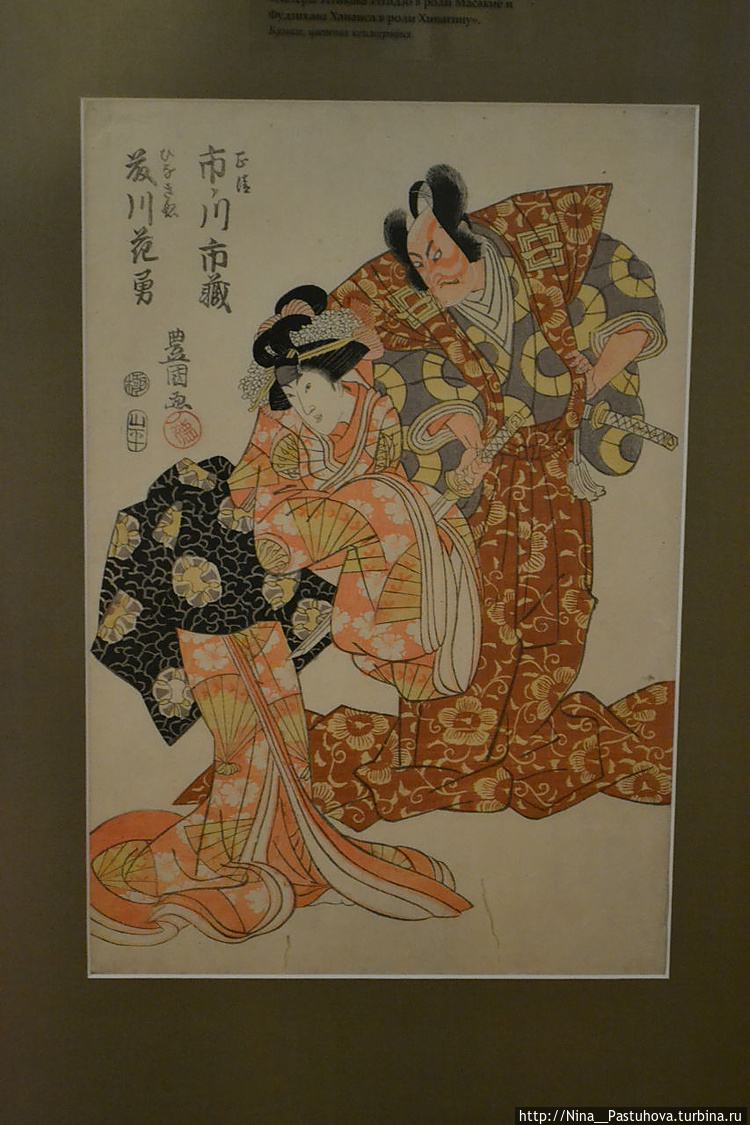 Фудзикава Ханаиса в роли Хинагину».
Бумага, цветная ксилография.
正清
市川市蔵
ひなきぬ
藤川花勇
豊國画
極
http://Nina__Pastuhova.turbina.ru